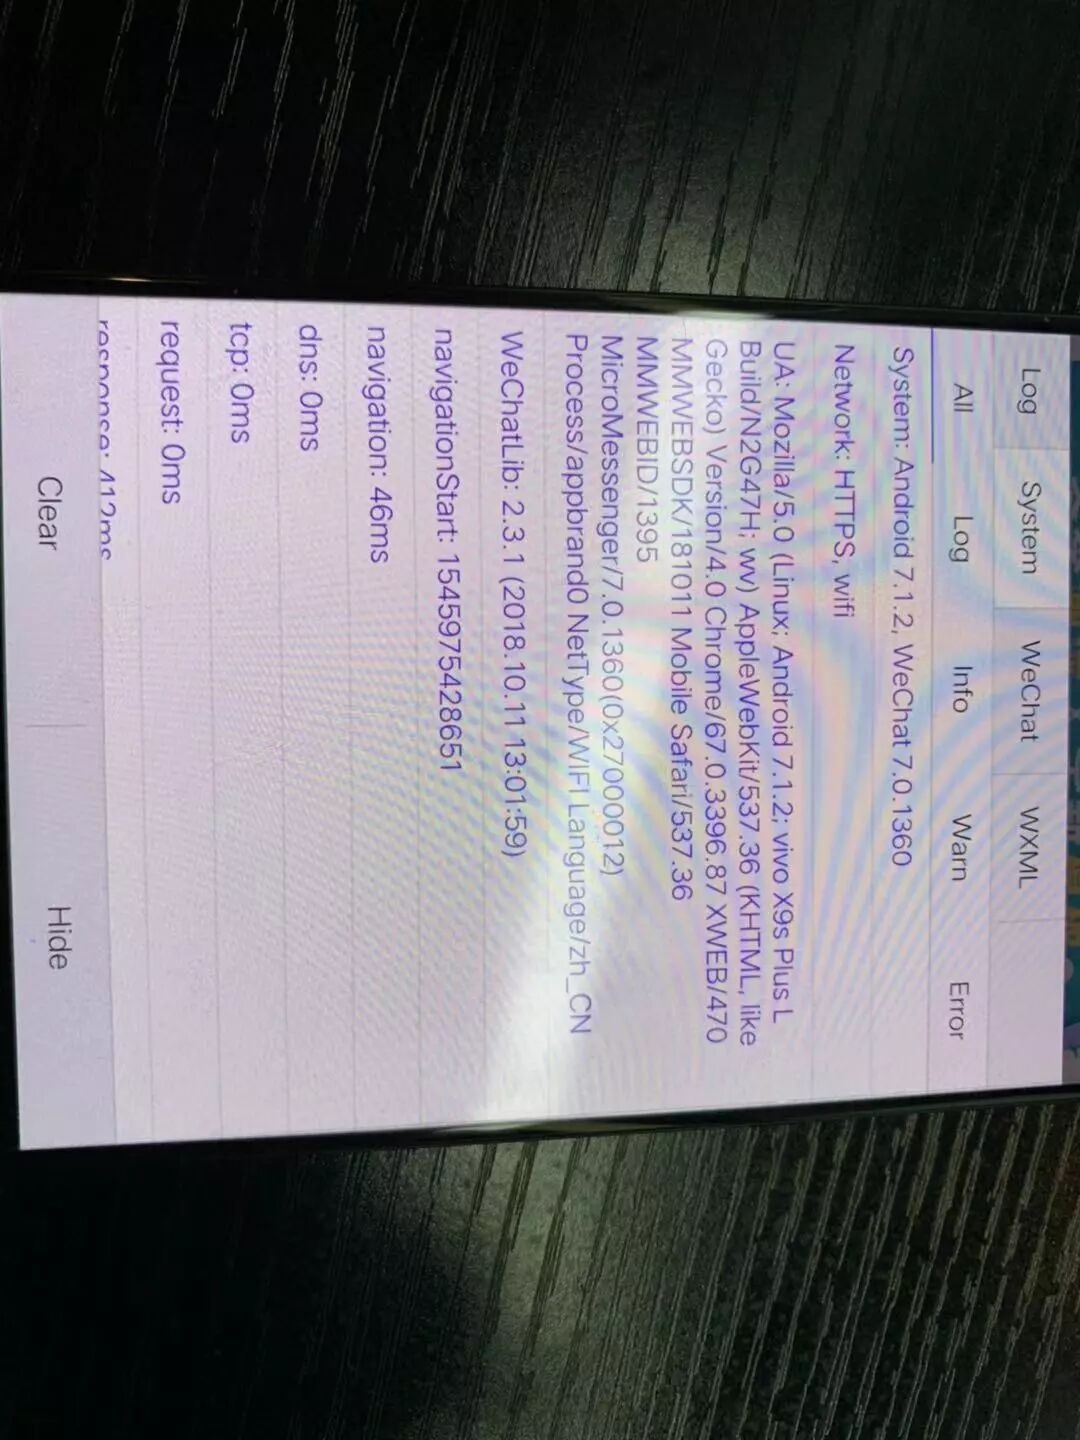 Log System WeChat WXML
All Log Info Warn Error
System: Android 7.1.2, WeChat 7.0.1360
Network: HTTPS, wifi
UA: Mozilla/5.0 (Linux; Android 7.1.2; vivo X9s Plus L
Build/N2G47H; wv) AppleWebKit/537.36 (KHTML, like
Gecko) Version/4.0 Chrome/67.0.3396.87 XWEB/470
MMWEBSDK/181011 Mobile Safari/537.36
MMWEBID/1395
MicroMessenger/7.0.1360(0x27000012)
Process/appbrand0 NetType/WIFI Language/zh_CN
WeChatLib: 2.3.1 (2018.10.11 13:01:59)
navigationStart: 1545975428651
navigation: 46ms
dns: 0ms
tcp: 0ms
request: 0ms
response: 412ms
Clear Hide